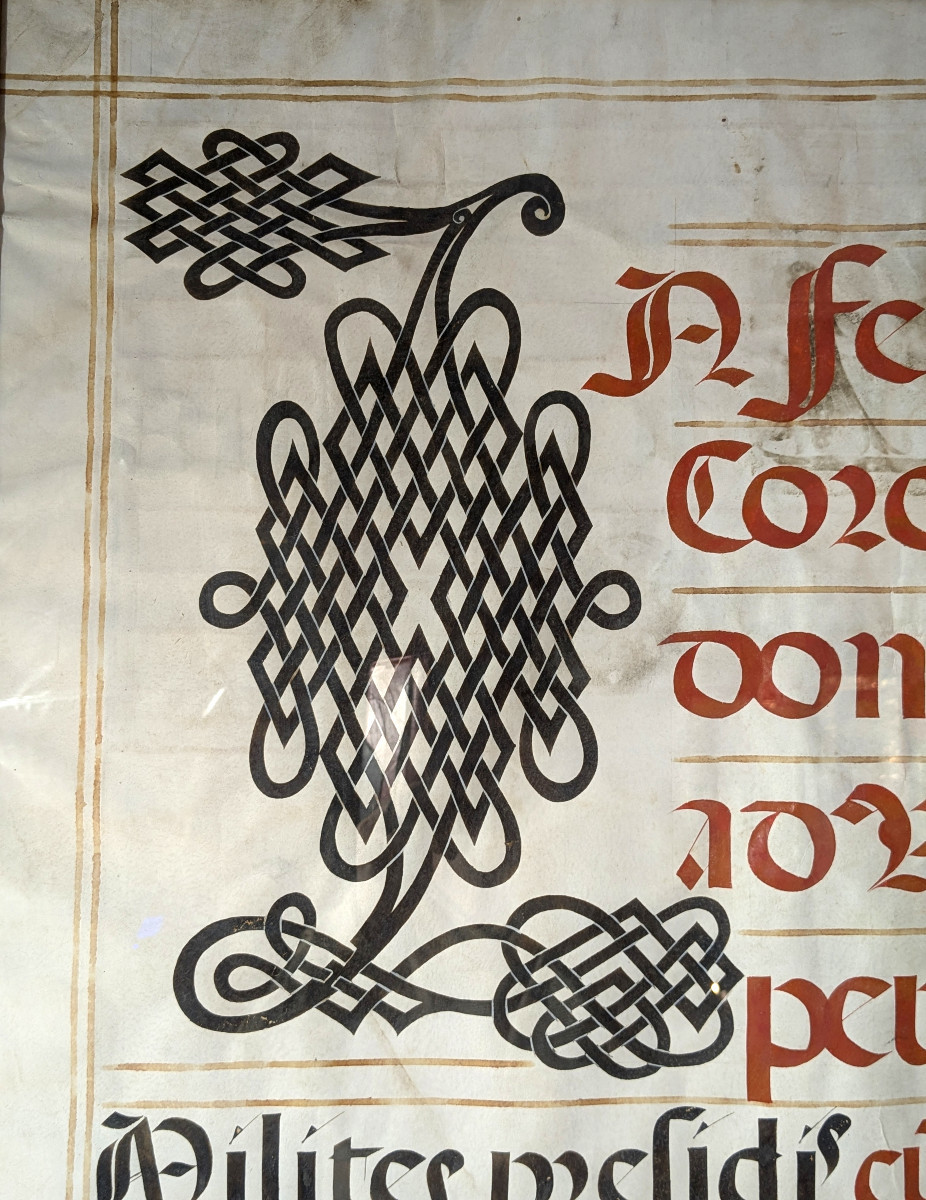 IN fe
Coro
dom
ad V
per
Milites presidis